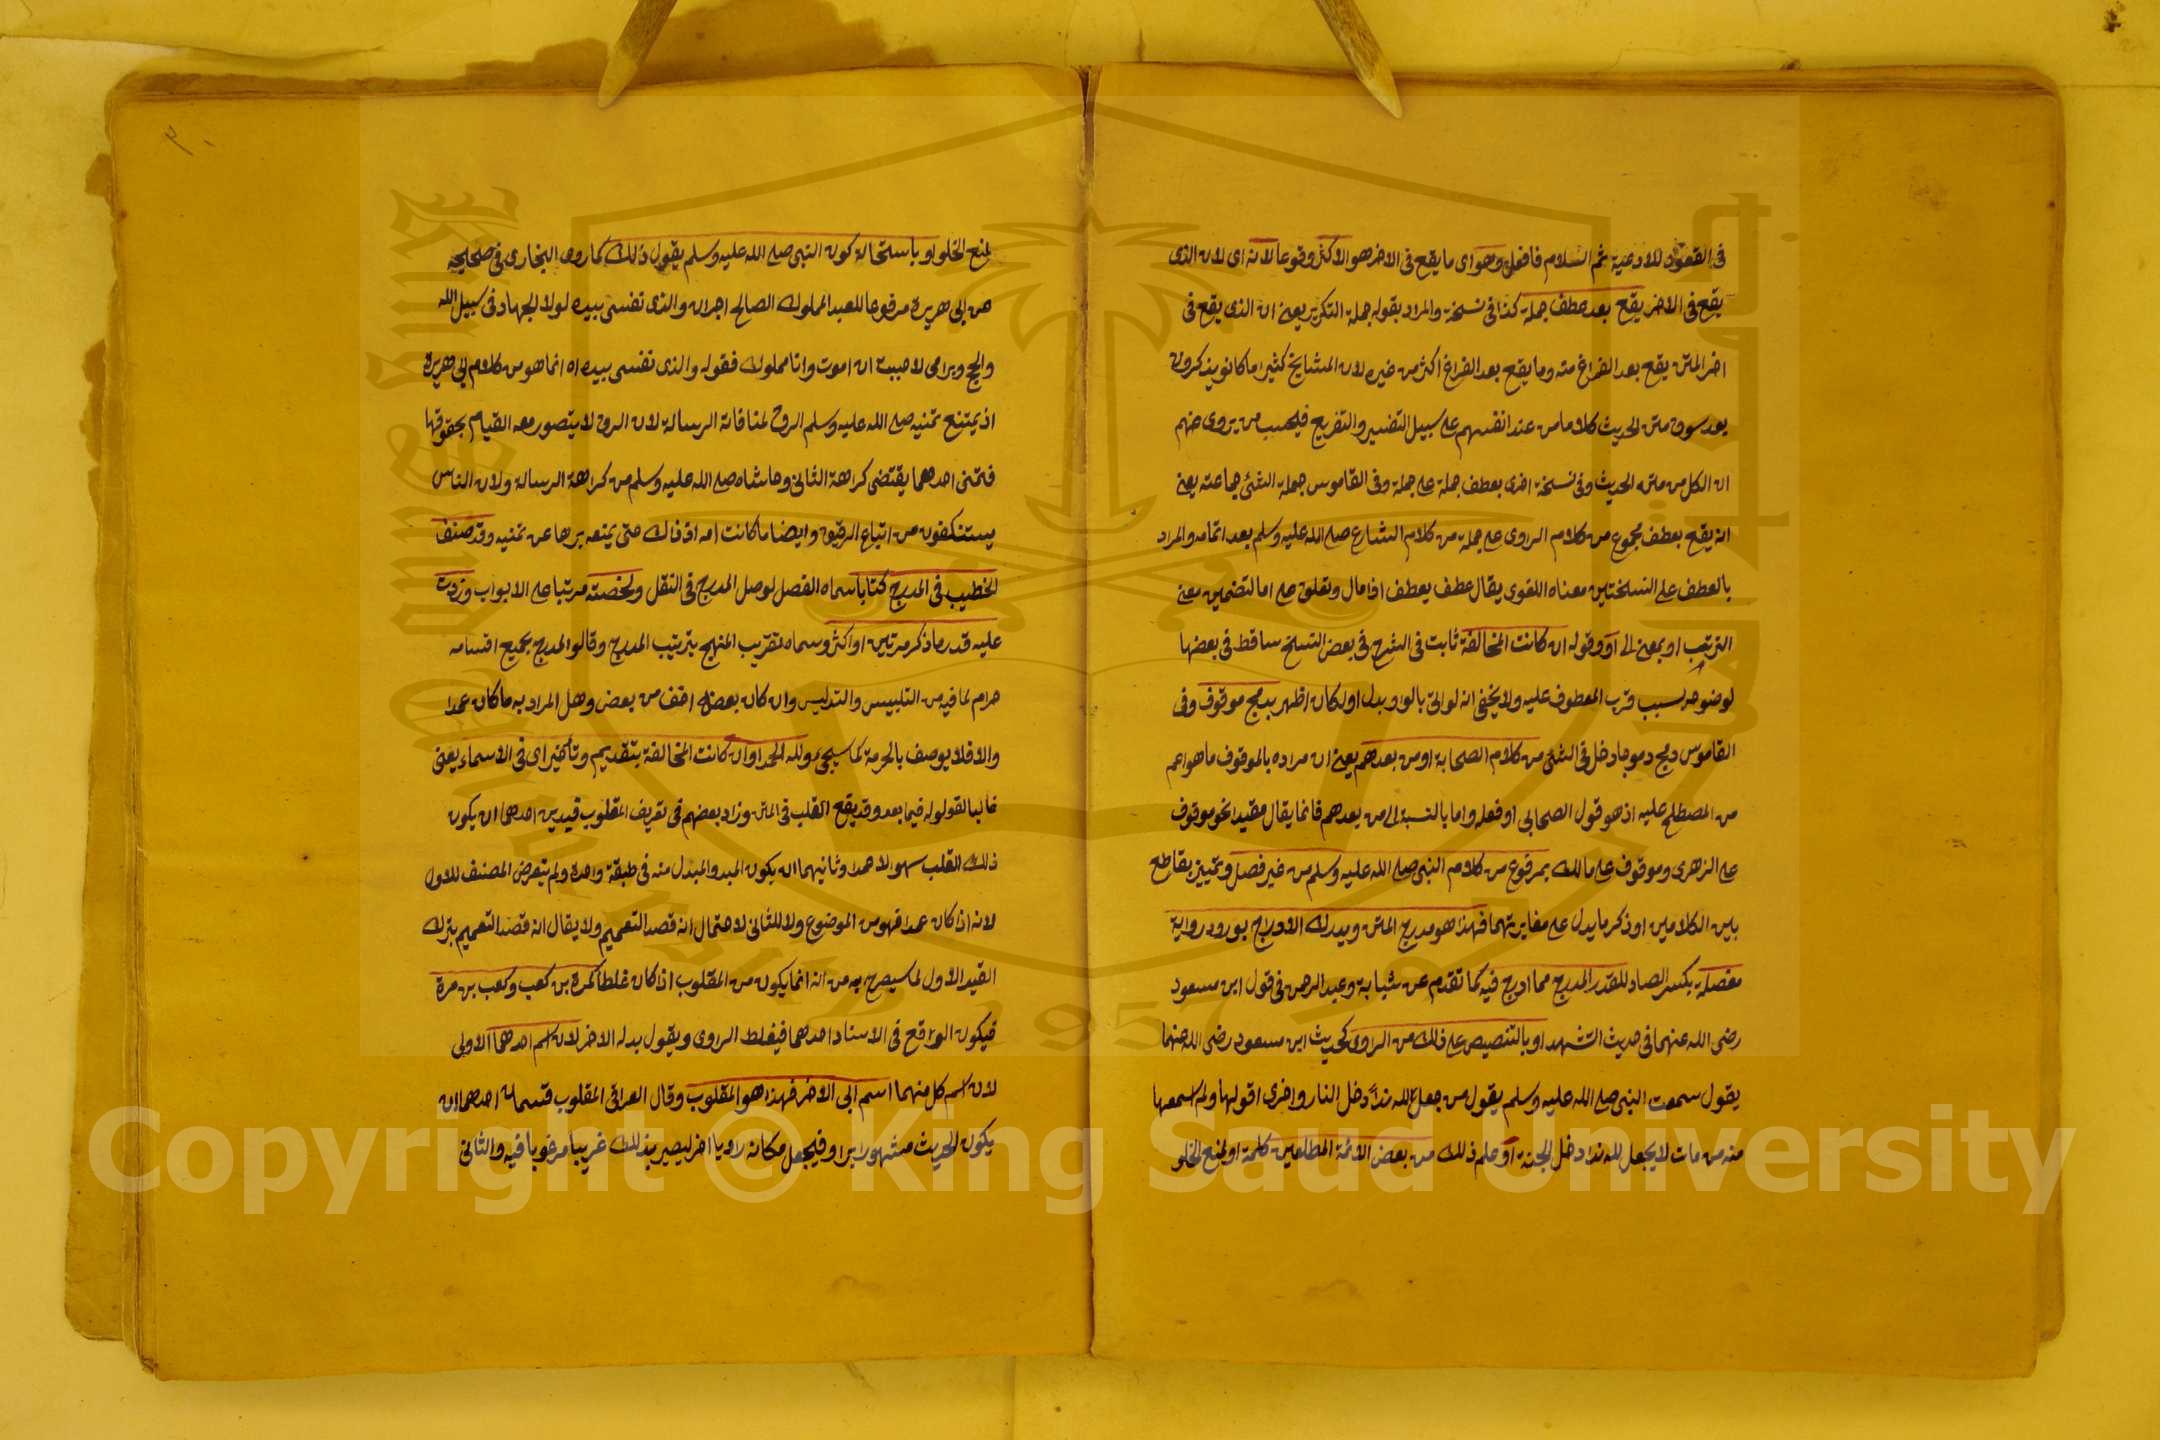 في القعود للادعية ثم السلام فافعل وهو اى ما يقع فى الاخر هو الاكثر وقوعا لانه اى لان الذى
يقع فى الاخر يقع بعد عطف جملة كذا فى نسخة والمراد بقوله جملة التكرير يعنى ان الذى يقع فى
اخر المتن يقع بعد الفراغ منه وما يقع بعد الفراغ اكثر من غيره لان المشايخ كثيرا ما كانوا يذكرون
بعد سوق متن الحديث كلاما من عند انفسهم على سبيل التفسير والتفريع فيحسب من يروى عنهم
ان الكل من متن الحديث وفى نسخة اخرى بعطف جملة على جملة وفى القاموس جملة الشئ جماعته يعنى
انه يقع بعطف مجموع من كلام الراوى على جملة من كلام الشارع صلى الله عليه وسلم بعد اتمامه والمراد
بالعطف على النسختين معناه اللغوى يقال عطف يعطف اذا مال وتعلق على اما لتضمين معنى
الترتيب او بمعنى الى او وقوله ان كانت المخالفة ثابت فى الشرح فى بعض النسخ ساقط فى بعضها
لوضوحه بسبب قرب المعطوف عليه ولا يخفى انه لو اتى بالواو بدل او لكان اظهر بدمج موقوف وفى
القاموس دمج دموجا دخل فى الشئ من كلام الصحابة او من بعدهم يعنى ان مراده بالموقوف ما هو اعم
من المصطلح عليه اذ هو قول الصحابى او فعله واما بالنسبة الى من بعدهم فانما يقال مقيدا نحو موقوف
على الزهرى وموقوف على مالك بمرفوع من كلام النبى صلى الله عليه وسلم من غير فصل وتمييز بقاطع
بين الكلامين او ذكر ما يدل على مغايرتهما فهذا هو مدرج المتن ويدرك الادراج بورود رواية
مفصلة بكسر الصاد للقدر المدرج مما ادرج فيه كما تقدم عن شبابة وعبد الرحمن فى قول ابن مسعود
رضى الله عنهما فى حديث التشهد او بالتنصيص على ذلك من الراوى كحديث ابن مسعود رضى الله عنهما
يقول سمعت النبى صلى الله عليه وسلم يقول من جعل لله ندا دخل النار واخرى اقولها ولم اسمعها
منه من مات لا يجعل لله ندا دخل الجنة او علم ذلك من بعض الائمة المطلعين كلمة او لمنع الخلو
لمنع الخلو او باستحالة كون النبى صلى الله عليه وسلم يقول ذلك كما روى البخارى فى صحيحه
عن ابى هريرة مرفوعا للعبد المملوك الصالح اجران والذى نفسى بيده لولا الجهاد فى سبيل الله
والحج وبر امى لاحببت ان اموت وانا مملوك فقوله والذى نفسى بيده اه انما هو من كلام ابى هريرة
اذ يمتنع تمنيه صلى الله عليه وسلم الرق لمنافاته الرسالة لان الرق لا يتصور معه القيام بحقوقها
فتمنى احدهما يقتضى كراهة الثانى وحاشاه صلى الله عليه وسلم من كراهة الرسالة ولان الناس
يستنكفون من اتباع الرقيق وايضا ما كانت امه اذ ذاك حتى يمنعه برها عن تمنيه وقد صنف
الخطيب فى المدرج كتابا سماه الفصل لوصل المدرج فى النقل ولخصته مرتبا على الابواب وزدت
عليه قدر ما ذكر مرتين او اكثر وسماه تقريب المنهج بترتيب المدرج وقالوا المدرج بجميع اقسامه
حرام لما فيه من التلبيس والتدليس وان كان بعضه اخف من بعض وهل المراد به ما كان عمدا
والا فلا يوصف بالحرمة كما سيجئ ولله الحمد او ان كانت المخالفة بتقديم وتأخير اى فى الاسماء يعنى
غالبا لقوله فيما بعد وقد يقع القلب فى المتن وزاد بعضهم فى تعريف المقلوب قيدين احدهما ان يكون
ذلك القلب سهوا لا عمدا وثانيهما ان يكون المبدل والمبدل منه فى طبقة واحدة ولم يتعرض المصنف للاول
لانه اذا كان عمدا فهو من الموضوع ولا للثانى لاحتمال انه قصد التعميم ولا يقال انه قصد التعميم بترك
القيد الاول لما سيصرح به من انه انما يكون من المقلوب اذا كان غلطا كمرة بن كعب وكعب بن مرة
فيكون الواقع فى الاسناد احدهما فيغلط الراوى ويقول بدله الاخر لان اسم احدهما الاولى
لان اسم كل منهما اسم ابى الاخر فهذا هو المقلوب وقال العراقى المقلوب قسمان احدهما ان
يكون الحديث مشهورا براو فيجعل مكانه راويا اخر ليصير بذلك غريبا مرغوبا فيه والثانى
Copyright © King Saud University
1957